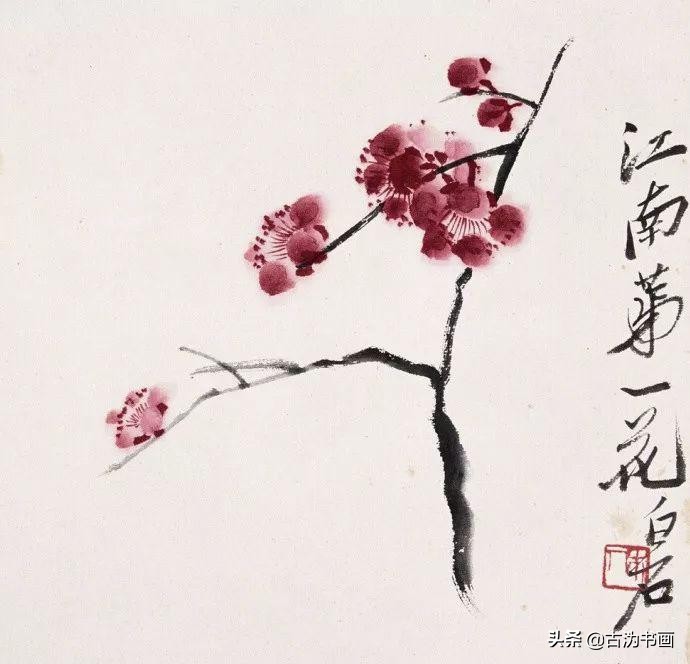 江南第一花 白石
头条 @古沩书画